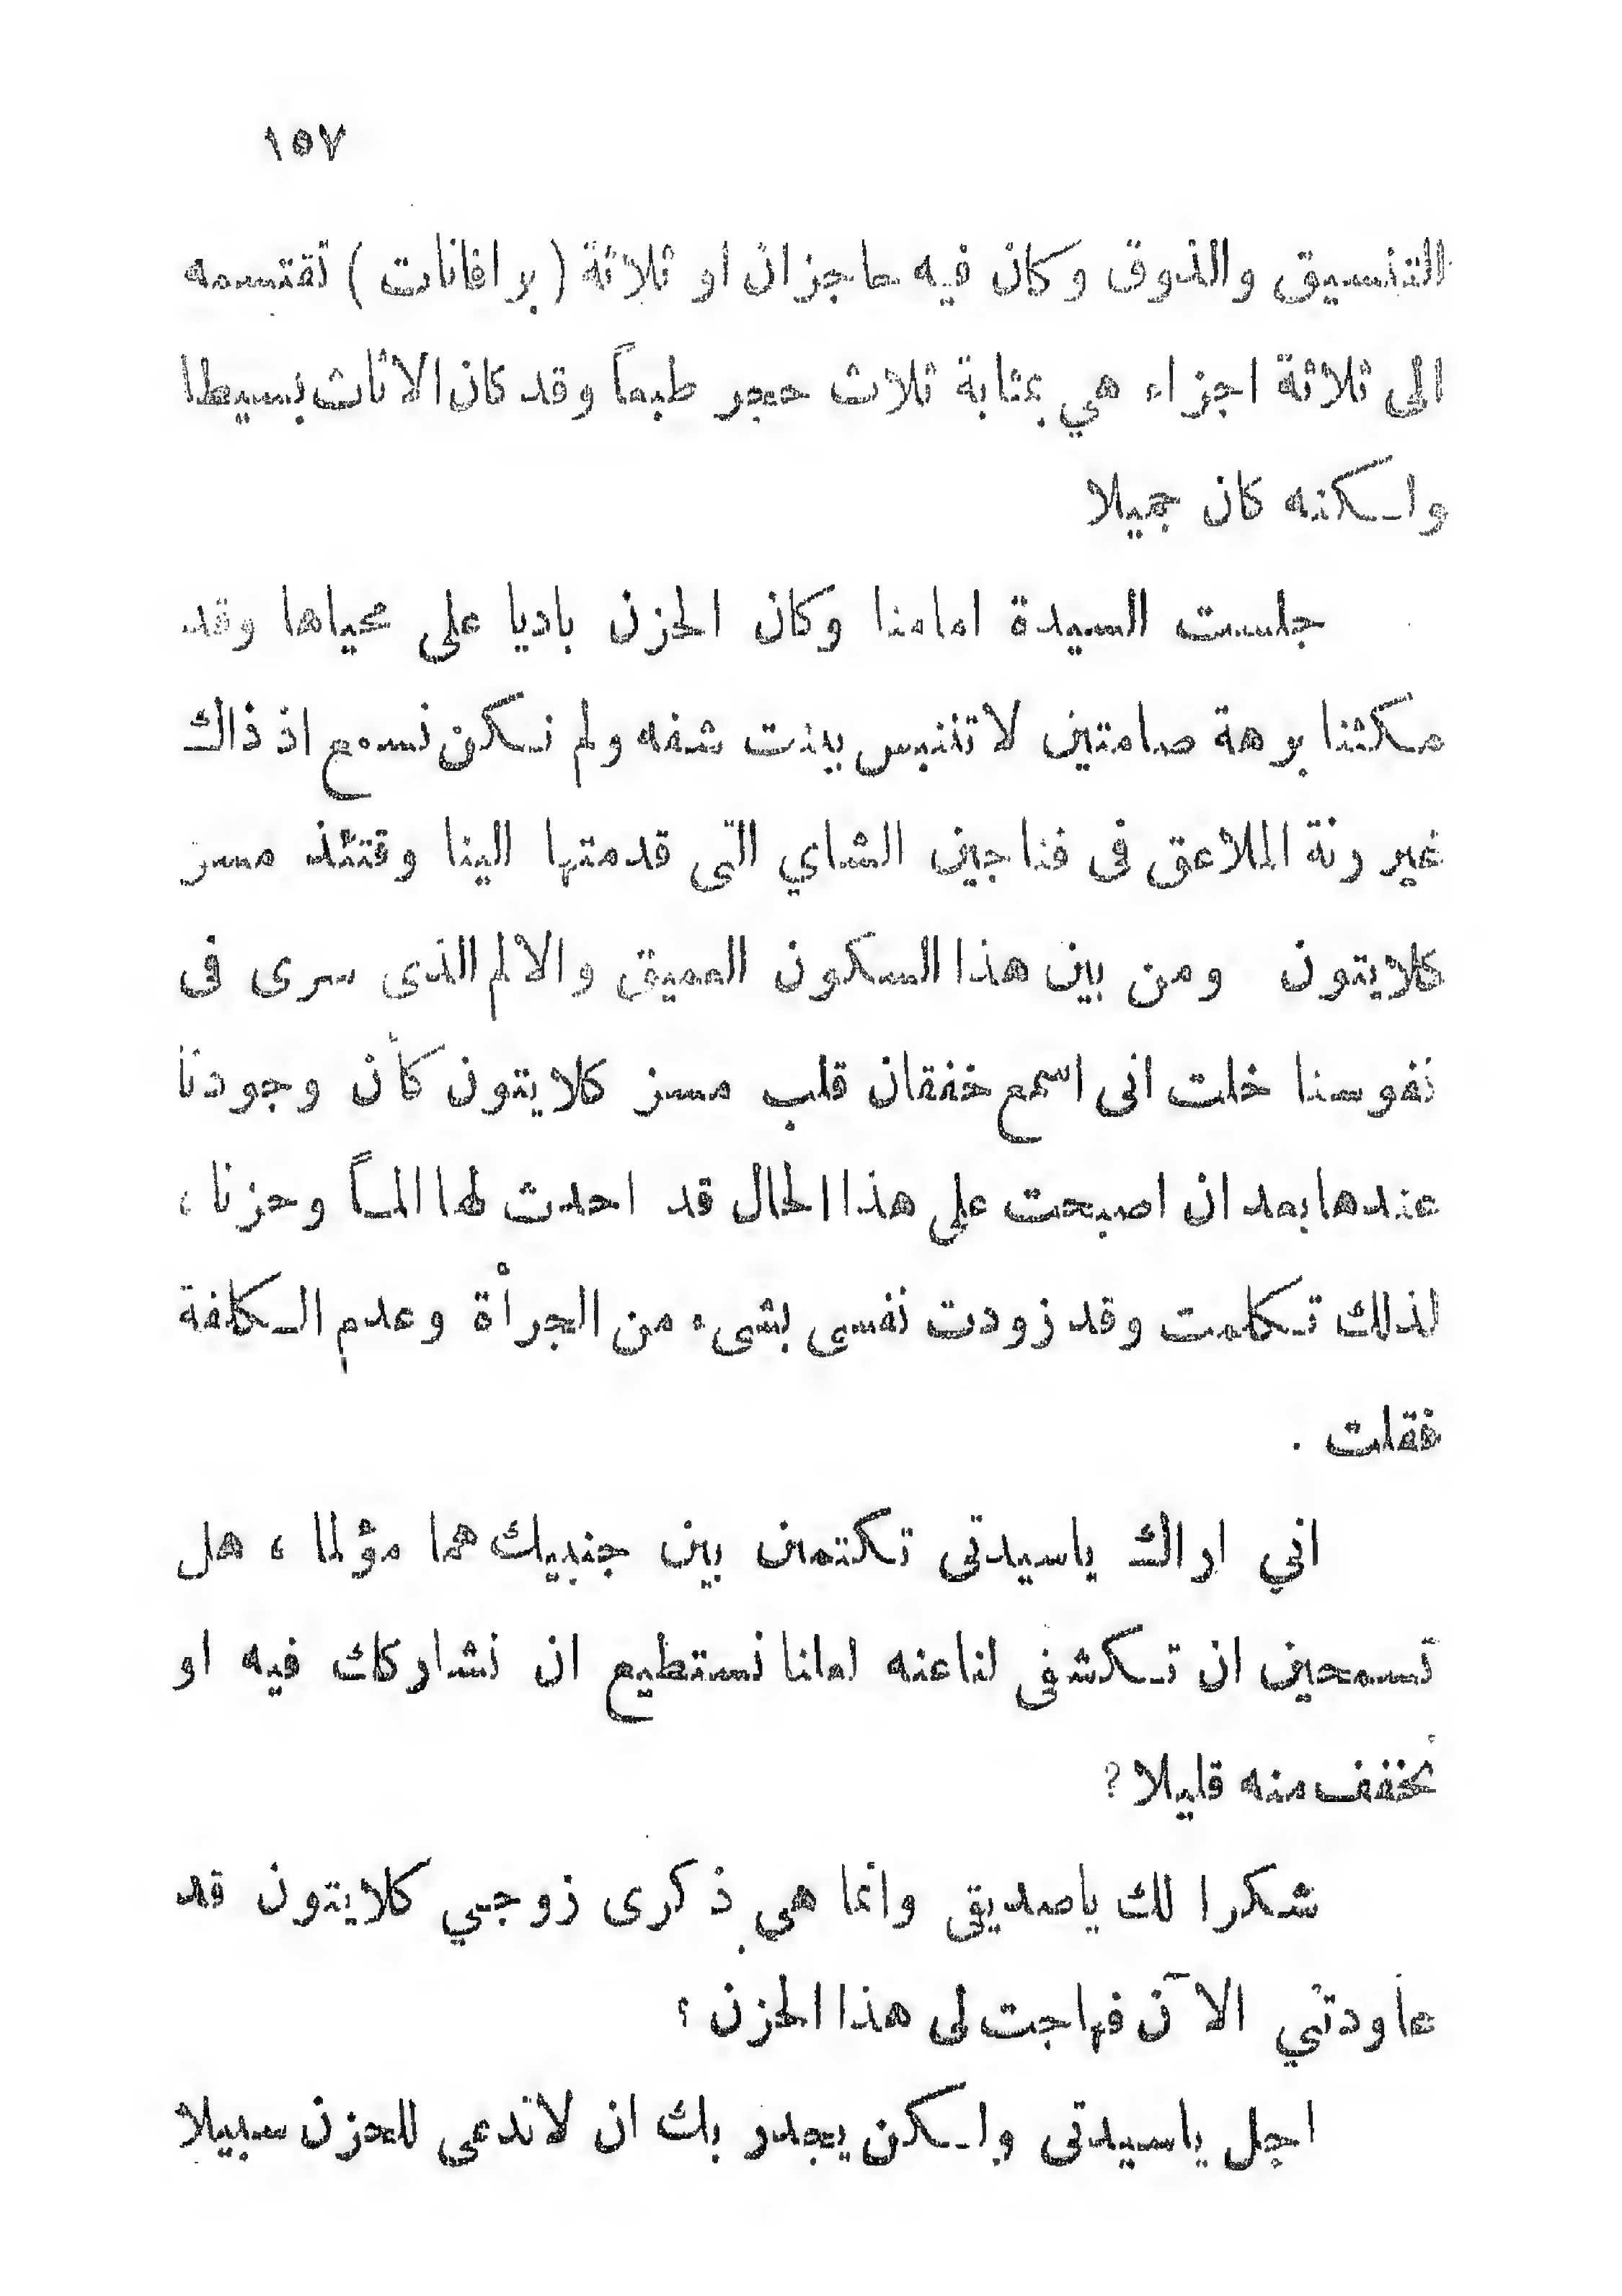 ١٥٧
التنسيق والذوق وكان فيه حاجزان او ثلاثة ( برافانات ) تقتسمه
الى ثلاثة اجزاء هي بمثابة ثلاث حجر طبعاً وقد كان الاثاث بسيطا
ولـكنه كان جميلا
جلست السيدة امامنا وكان الحزن باديا على محياها وقد
مكثنا برهة صامتين لا تنبس ببنت شفه ولم نـكن نسمع اذ ذاك
غير رنة الملاعق فى فناجين الشاي التى قدمتها الينا وقتئذ مسز
كلايتون ومن بين هذا السكون العميق والالم الذى سرى فى
نفوسنا خلت انى اسمع خفقان قلب مسز كلايتون كأن وجودنا
عندها بعد ان اصبحت على هذا الحال قد احدث لها المـاً وحزنا ،
لذلك تـكلمت وقد زودت نفسى بشىء من الجرأة وعدم الـكلفة
فقلت .
اني اراك ياسيدتى تكتمين بين جنبيك هما مؤلما ، هل
تسمحين ان تـكشفى لنا عنه لعلنا نستطيع ان نشاركك فيه او
نخفف منه قليلا ?
شكرا لك ياصديقى وانما هى ذكرى زوجي كلايتون قد
عاودتني الآن فهاجت لى هذا الحزن ؛
اجل ياسيدتى ولـكن يجدر بك ان لاتدعى للحزن سبيلا